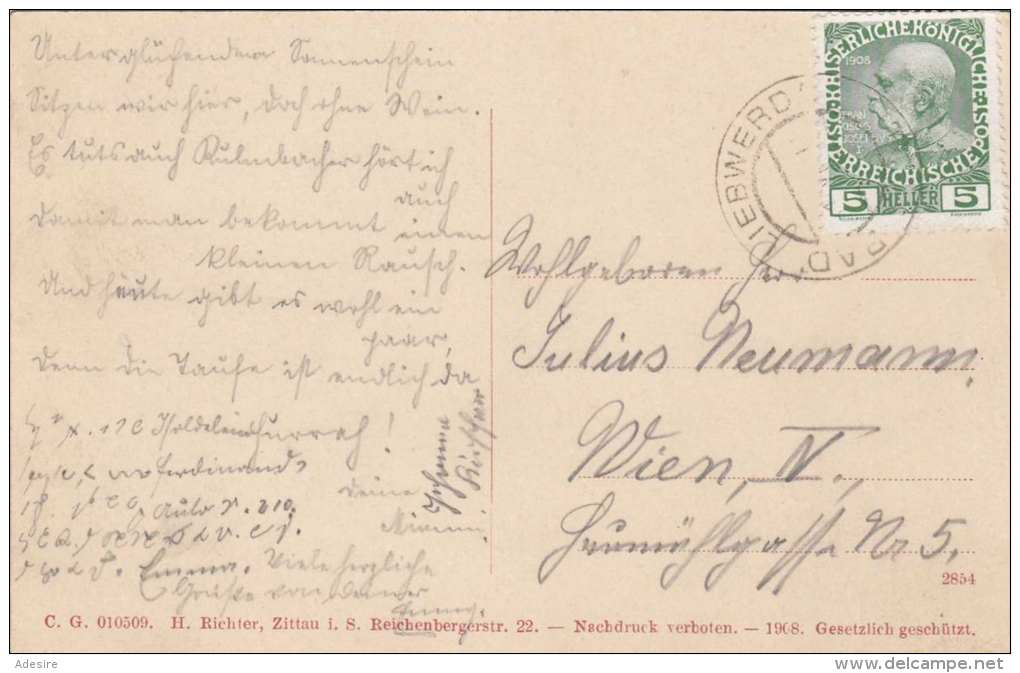 Unter glühendem Sonnenschein
Sitzen wir hier, doch ohne Wein.
Es tuts auch Kulmbacher hört ich
auch
damit man bekommt einen
kleinen Rausch.
Und heute gibt es wohl ein
paar,
denn die Taufe ist endlich da
Hurrah!
Ferdinand
Deine
Minni.
Auto
Emma. Viele herzliche
Grüße von Deiner
Johanna
Wohlgeboren Herrn
Julius Neumann,
Wien, IV.,
Heumühlgasse Nr 5.
KAISERLICHEKÖNIGLICHE
ÖSTERREICHISCHE POST
1908
FRANZ JOSEF I
5 HELLER 5
BAD LIEBWERDA
2854
C. G. 010509. H. Richter, Zittau i. S. Reichenbergerstr. 22. — Nachdruck verboten. — 1908. Gesetzlich geschützt.
Adesire
delcampe.net